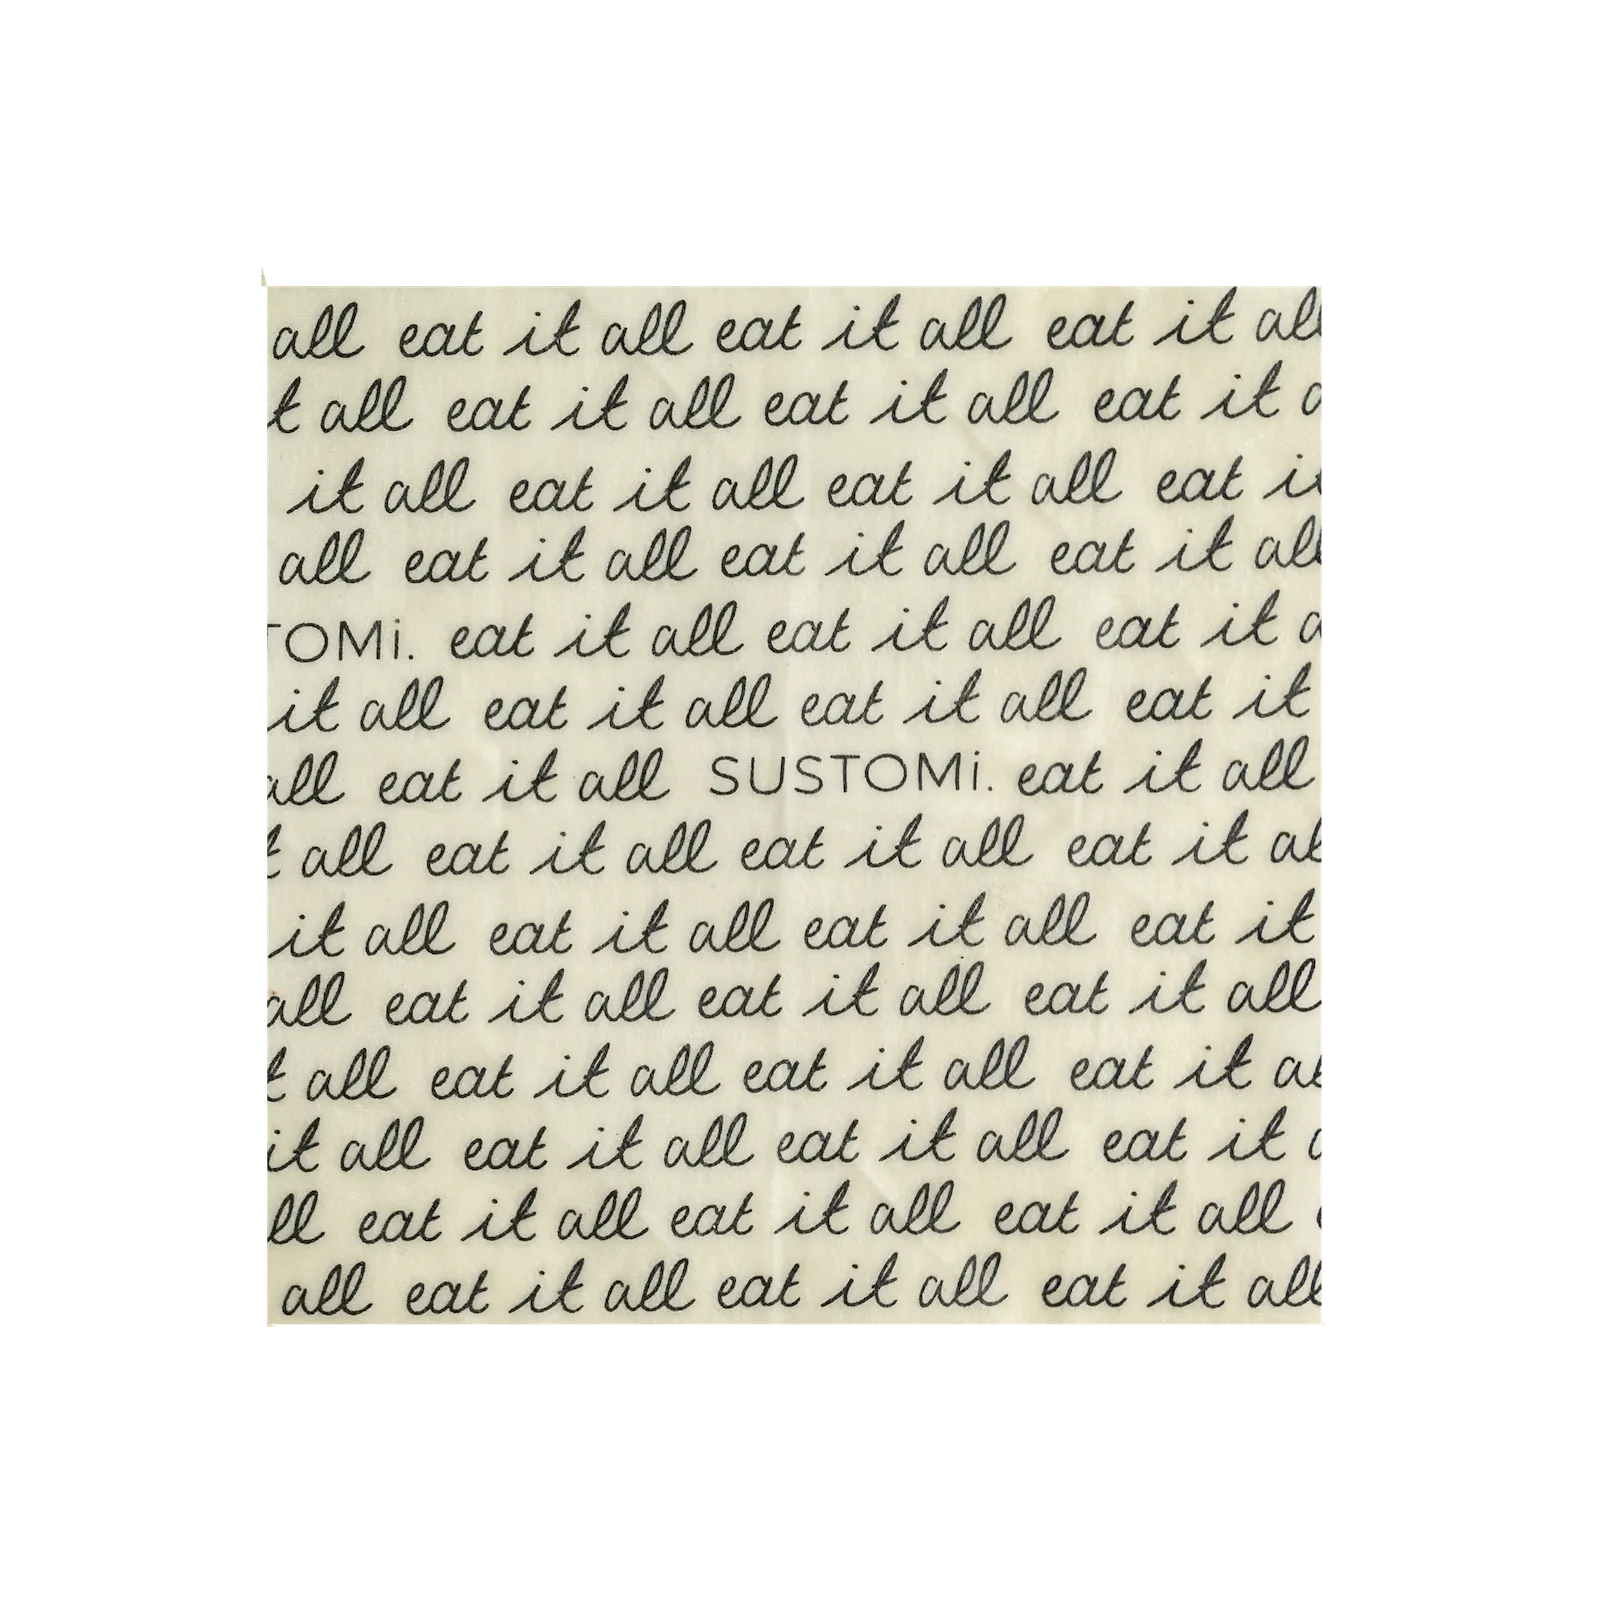 all eat it all eat it all eat it all
t all eat it all eat it all eat it a
it all eat it all eat it all eat it
all eat it all eat it all eat it all
TOMi. eat it all eat it all eat it a
it all eat it all eat it all eat it
all eat it all SUSTOMi. eat it all
t all eat it all eat it all eat it al
it all eat it all eat it all eat it
all eat it all eat it all eat it all
t all eat it all eat it all eat it al
it all eat it all eat it all eat it a
ll eat it all eat it all eat it all
all eat it all eat it all eat it all